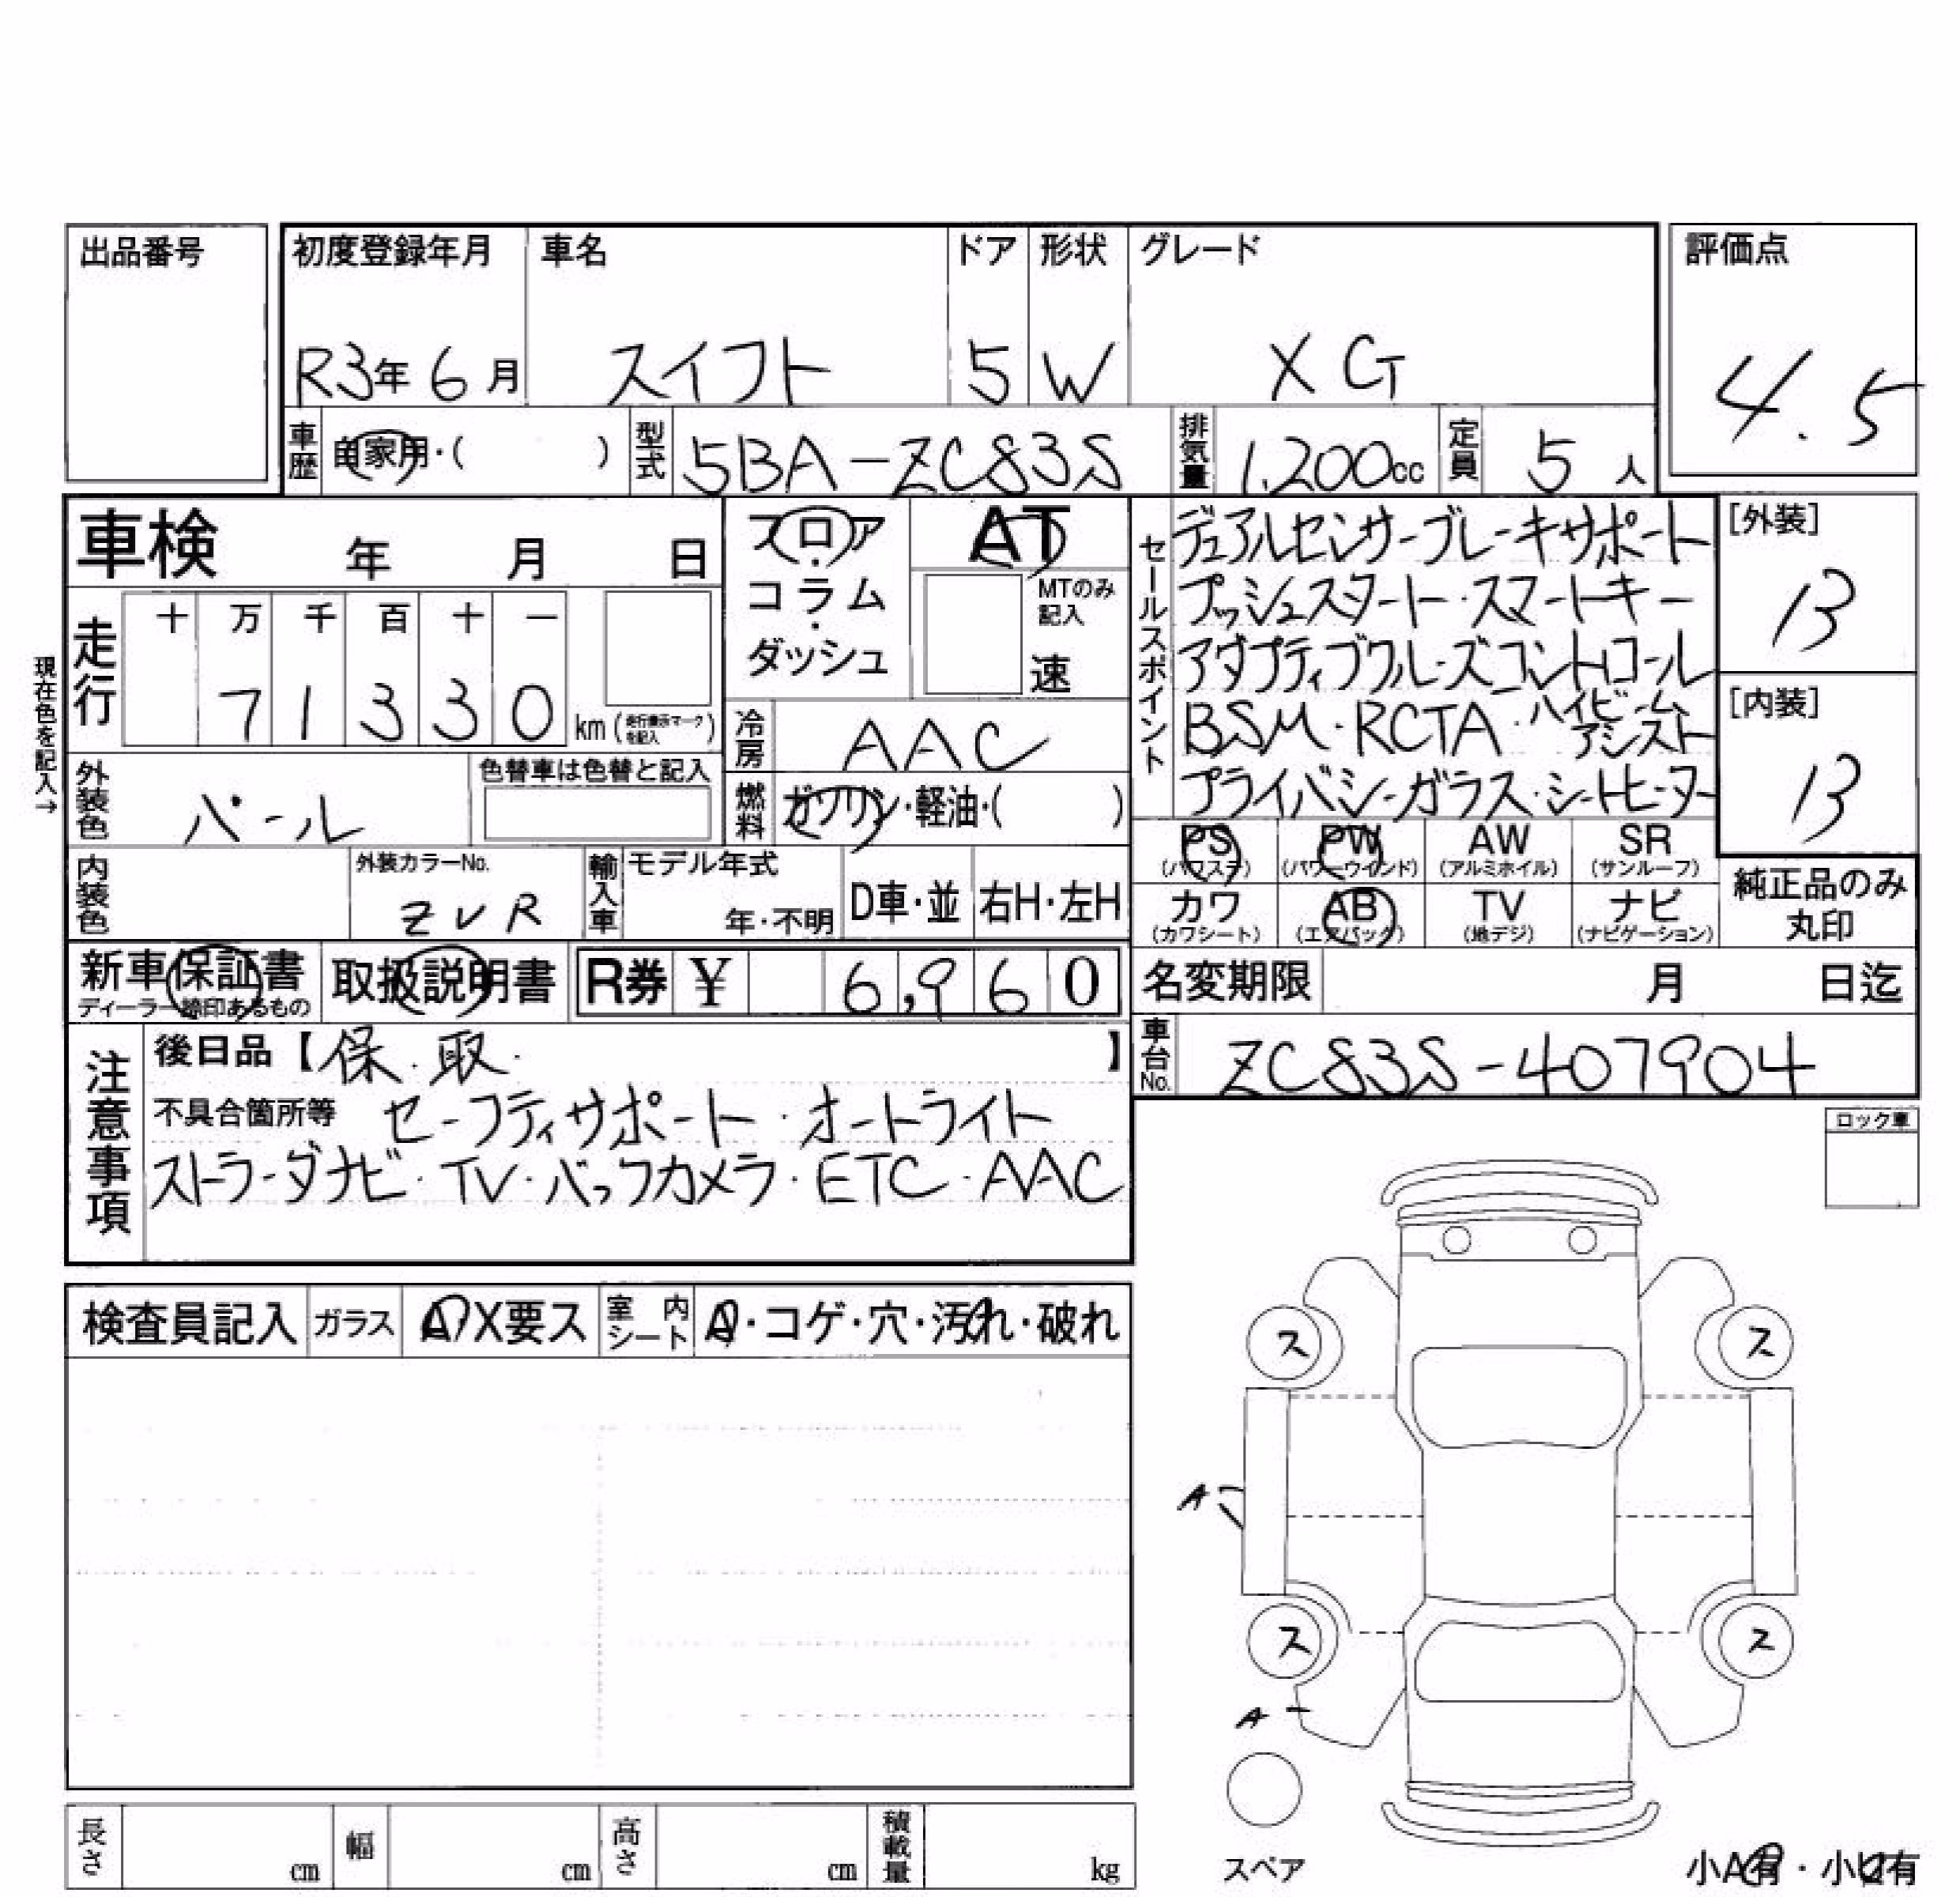 出品番号
初度登録年月 車名 ドア 形状 グレード 評価点
R3年 6月 スイフト 5 W XG 4.5
車歴 自家用・( ) 型式 5BA-ZC83S 排気量 1,200cc 定員 5人
車検 年 月 日
フロア・コラム・ダッシュ
AT
MTのみ記入
速
セールスポイント
デュアルセンサーブレーキサポート
プッシュスタート・スマートキー
アダプティブクルーズコントロール
BSM・RCTA・ハイビームアシスト
プライバシーガラス・シートヒーター
[外装]
13
[内装]
13
現在色を記入→
走行 十 万 千 百 十 一
7 1 3 3 0 km (走行表示マークを記入)
冷房 AAC
燃料 ガソリン・軽油・( )
外装色 パール 色替車は色替と記入
内装色 外装カラーNo. ZVR
輸入車 モデル年式 年・不明 D車・並 右H・左H
PS (パワステ) PW (パワーウインド) AW (アルミホイル) SR (サンルーフ)
カワ (カワシート) AB (エアバック) TV (地デジ) ナビ (ナビゲーション)
純正品のみ丸印
新車保証書 ディーラー捺印あるもの 取扱説明書 R券 ¥ 6,960
名変期限 月 日迄
車台No. ZC83S-407904
注意事項
後日品【保・取・ 】
不具合箇所等 セーフティサポート・オートライト
ストラーダナビ・TV・バックカメラ・ETC・AAC
ロック車
検査員記入 ガラス A・X要ス 室内シート A・コゲ・穴・汚れ・破れ
ス ス
A
ス ス
A
スペア
長さ cm 幅 cm 高さ cm 積載量 kg
小A有・小ヒ有